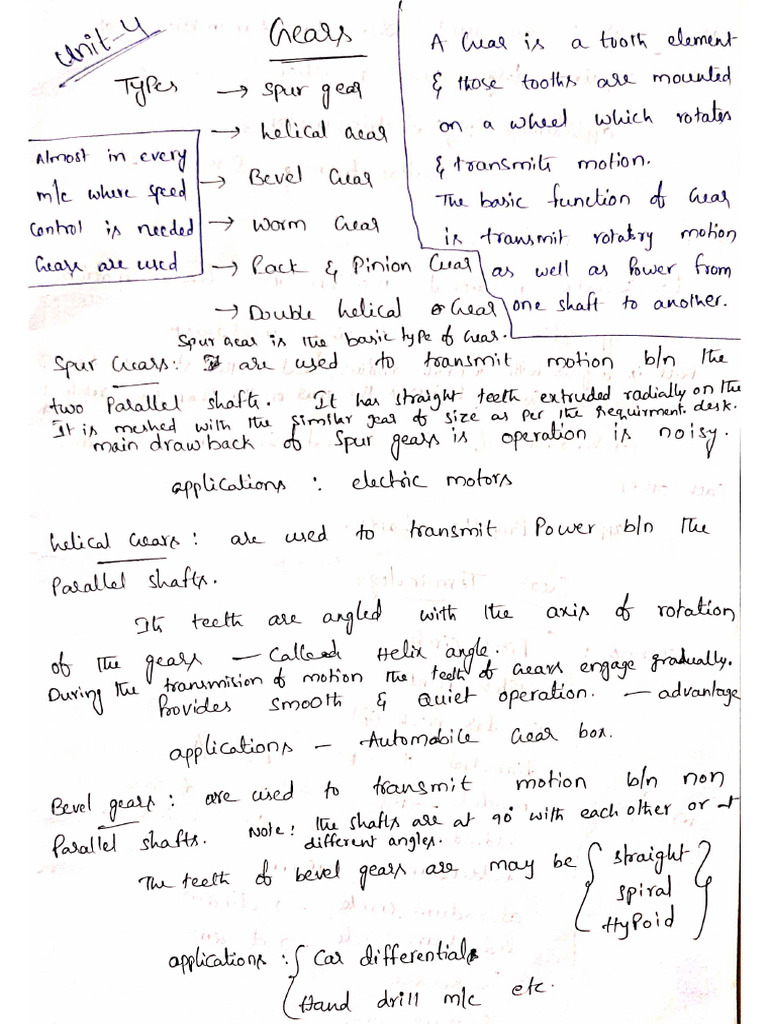 Unit-4
Gears
Types → Spur gear
→ helical gear
→ Bevel Gear
→ Worm Gear
→ Rack & Pinion Gear
→ Double helical Gear
Almost in every
m/c where speed
control is needed
Gears are used
A Gear is a tooth element
& those tooths are mounted
on a wheel which rotates
& transmits motion.
The basic function of Gear
is transmit rotatry motion
as well as Power from
one shaft to another.
Spur gear is the basic type of Gear.
Spur Gears: are used to transmit motion b/n the
two Parallel shafts. It has straight teeth extruded radially on the
desk.
It is meshed with the similar gear of size as per the requirment.
main drawback of Spur gears is operation is noisy.
applications : electric motors
helical Gears : are used to transmit Power b/n the
Parallel shafts.
Its teeth are angled with the axis of rotation
of the gears — Called Helix angle.
During the transmision of motion the teeth of Gears engage gradually.
Provides smooth & Quiet operation. — advantage
applications — Automobile Gear box.
Bevel gears : are used to transmit motion b/n non
Parallel shafts. Note: the shafts are at 90° with each other or at
different angles.
The teeth of bevel gears are may be { straight
spiral
HyPoid }
applications : { Car differentials
Hand drill m/c etc.